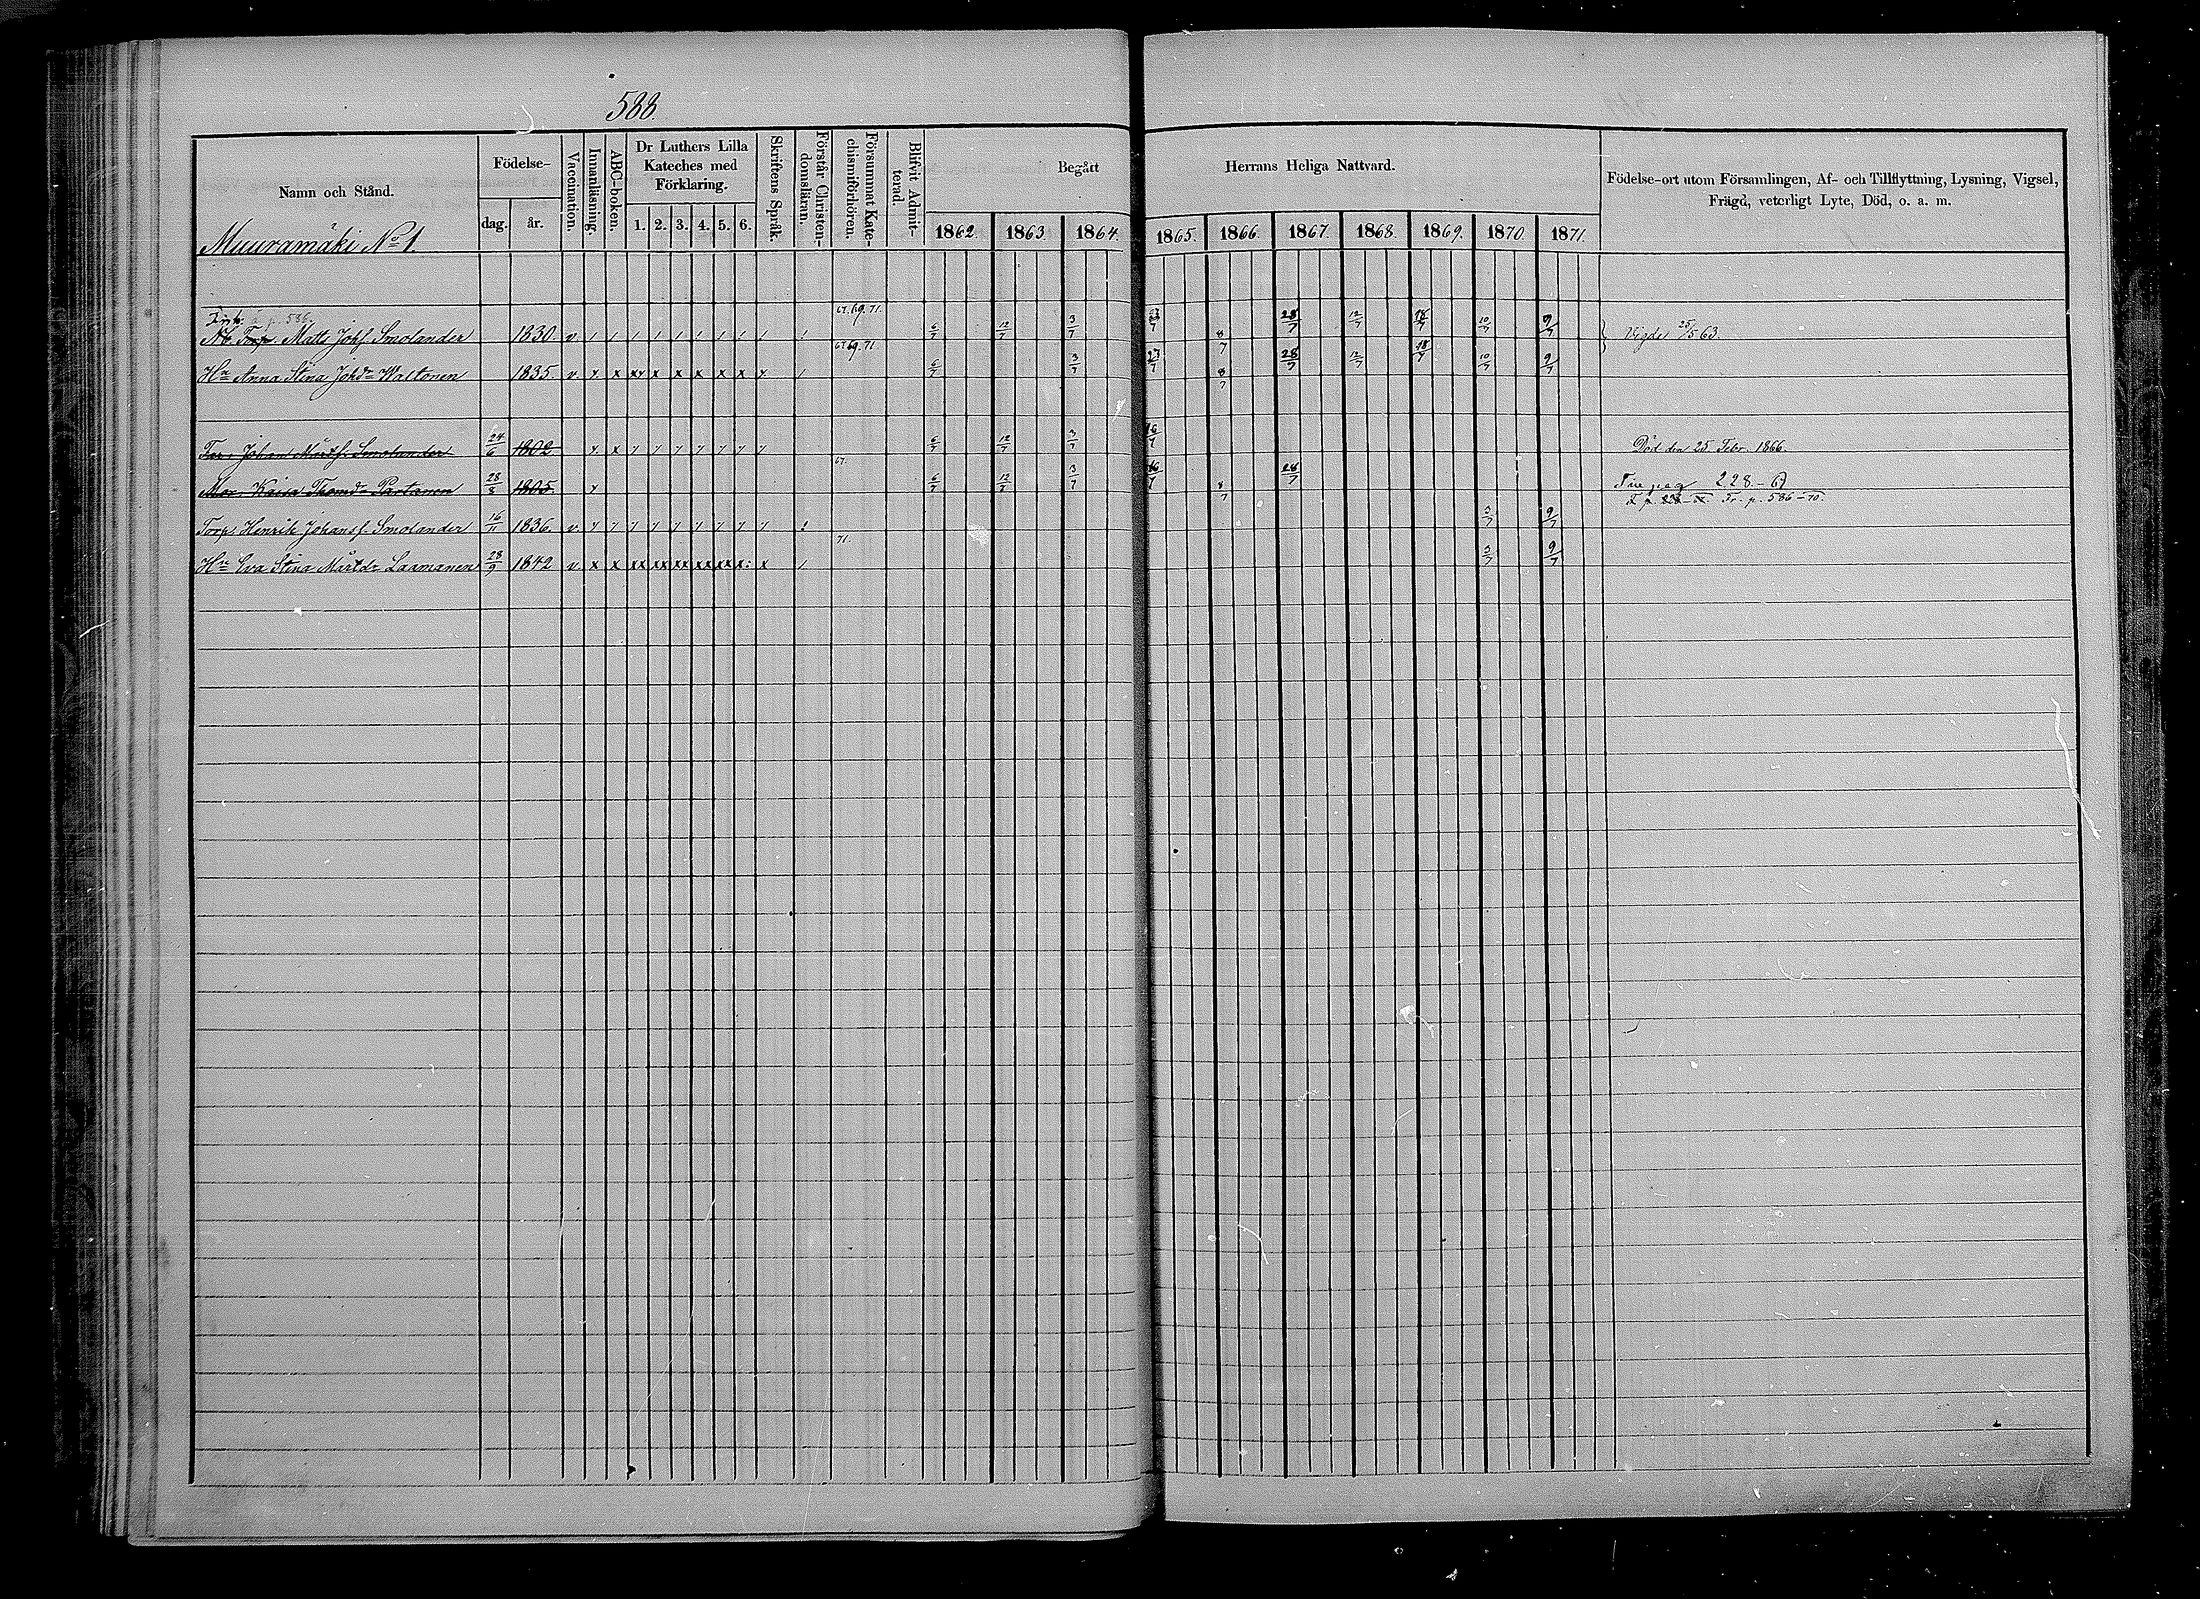 588.
Namn och Stånd.
Födelse-
dag. år.
Vaccination.
Innanläsning.
ABC-boken.
Dr Luthers Lilla
Kateches med
Förklaring.
1. 2. 3. 4. 5. 6.
Skriftens Språk.
Förstår Christen-
domsläran.
Försummat Kate-
chismiförhören.
Blifvit Admit-
terad.
Begått Herrans Heliga Nattvard.
1862. 1863. 1864. 1865. 1866. 1867. 1868. 1869. 1870. 1871.
Födelse-ort utom Församlingen, Af- och Tillflyttning, Lysning, Vigsel,
Frägd, veterligt Lyte, Död, o. a. m.
Muuramäki No 1
p. 586. 67. 69. 71.
Matts Johs Smolander 1830. v 6/7 12/7 3/7 23/7 8/7 28/7 12/7 18/7 10/7 9/7 Vigde 25/5 63.
67 69. 71
Hu Anna Stina Johdr Waltonen 1835. v 6/7 3/7 23/7 8/7 28/7 12/7 18/7 10/7 9/7
Far Johan Mårts Smolander 24/6 1802 6/7 12/7 3/7 16/7 Död den 25 Febr. 1866.
67.
Mor Kaisa Thomdr Partanen 28/8 1805. 6/7 12/7 3/7 16/7 8/7 28/7 pag 228.
Fr. p. 586-70.
Torp. Henrik Johans Smolander 16/11 1836. v. 3/7 9/7
71.
Hu Eva Stina Mårtdr Laamanen 28/9 1842 v x x xx xx xx xx xx x: x 3/7 9/7